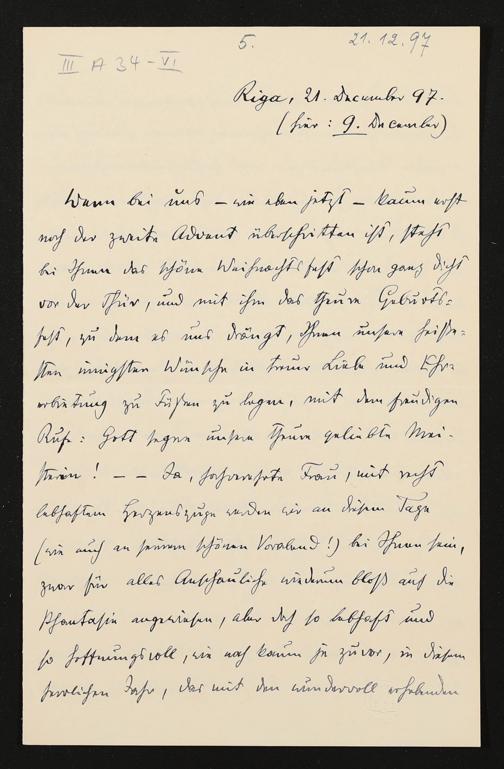 III A 34 - VI
5.
21.12.97
Riga, 21. December 97.
(hier: 9. December)
Wenn bei uns – wie eben jetzt – kaum erst
noch der zweite Advent überschritten ist, steht
bei Ihnen das schöne Weihnachtsfest schon ganz dicht
vor der Thür, und mit ihm das theure Geburts-
fest, zu dem es uns drängt, Ihnen unsere heiße-
sten innigsten Wünsche in treuer Liebe und Ehr-
erbietung zu Füßen zu legen, mit dem freudigen
Rufe: Gott segne unsere theure geliebte Mei-
sterin! – – Ja, hochverehrte Frau, mit recht
lebhaftem Herzenszuge werden wir an diesem Tage
(wie auch an seinem schönen Vorabend!) bei Ihnen sein,
zwar für alles Anschauliche wiederum bloß auf die
Phantasie angewiesen, aber doch so lebhaft und
so hoffnungsvoll, wie noch kaum je zuvor, in diesem
herrlichen Jahr, das mit den wundervoll erhebenden